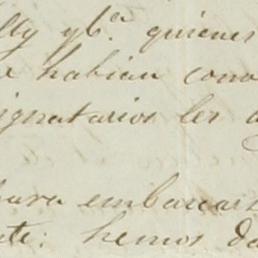 lty y b.ª quienes
habian cono
signatarios les a
para embarcar
te: hemos da